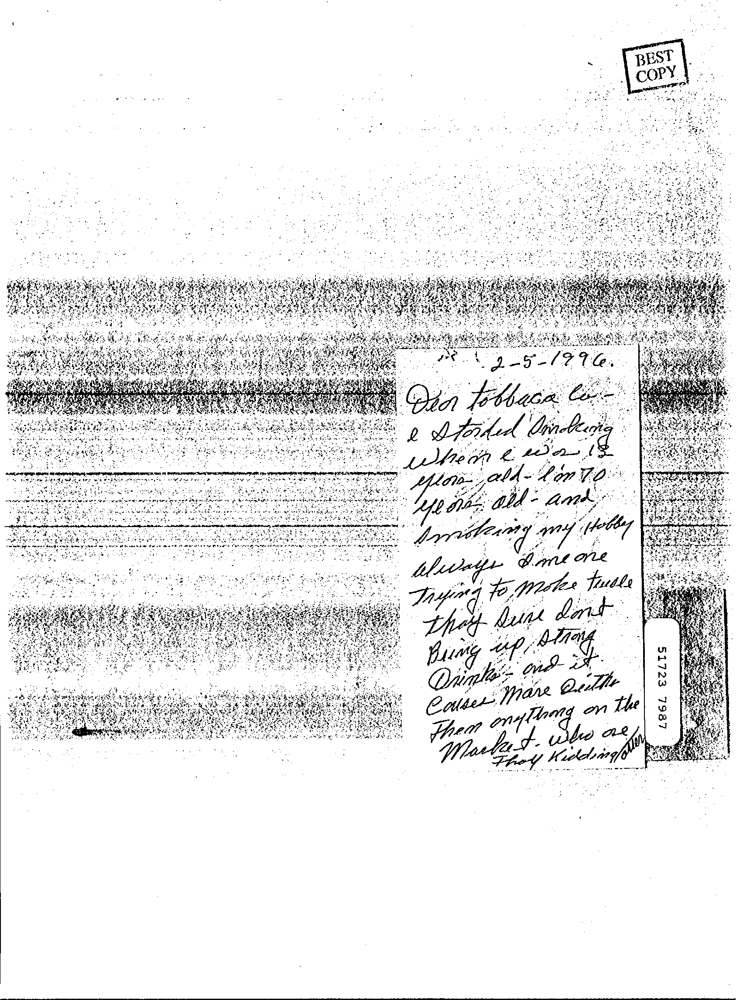 BEST
COPY
2-5-1996.
Dear tobbaca Co -
e Storded Smoking
when e wos 13
years old - I'm 70
years old - and
smoking my Hobby
always someone
Trying To Moke truble
thay Sure dont
Bring up Strong
Drinks - and it
Causes More Deiths
Then anything on the
Market. who are
Thay Kidding
51723 7987